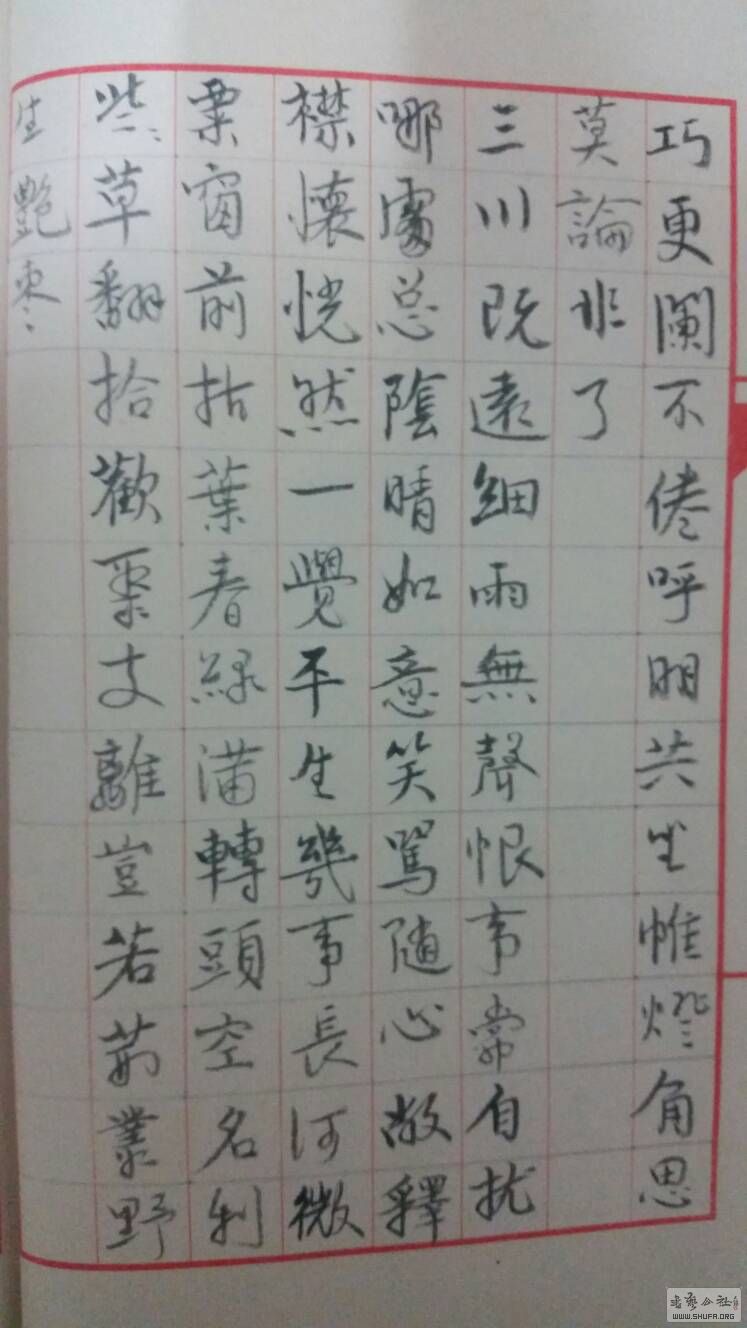 巧更闌不倦呼朋共坐帷燈角思
莫論非了
三川既遠細雨無聲恨事常自扰
哪處总陰晴如意笑罵随心敞釋
襟懷恍然一覺平生幾事長河微
粟窗前拈葉春綠满轉頭空名利
些些草翻拾歡聚支離豈若前叢野
生艷枣枣
WWW.SHUFA.ORG